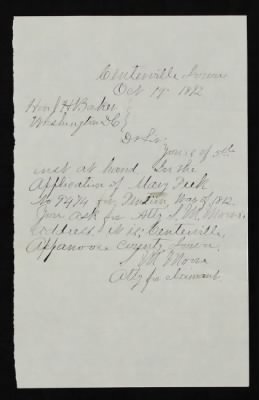 Centerville Iowa
Oct 19 1872
Hon J H Baker
Washington DC
Dr Sir
Yours of 5th
inst at hand In the
Application of Mary
No 7474 for Pension War of 1812.
You ask for Atty S. M. Moore
address it is Centerville,
Appanoose County Iowa.
S. M. Moore
Atty for claimant